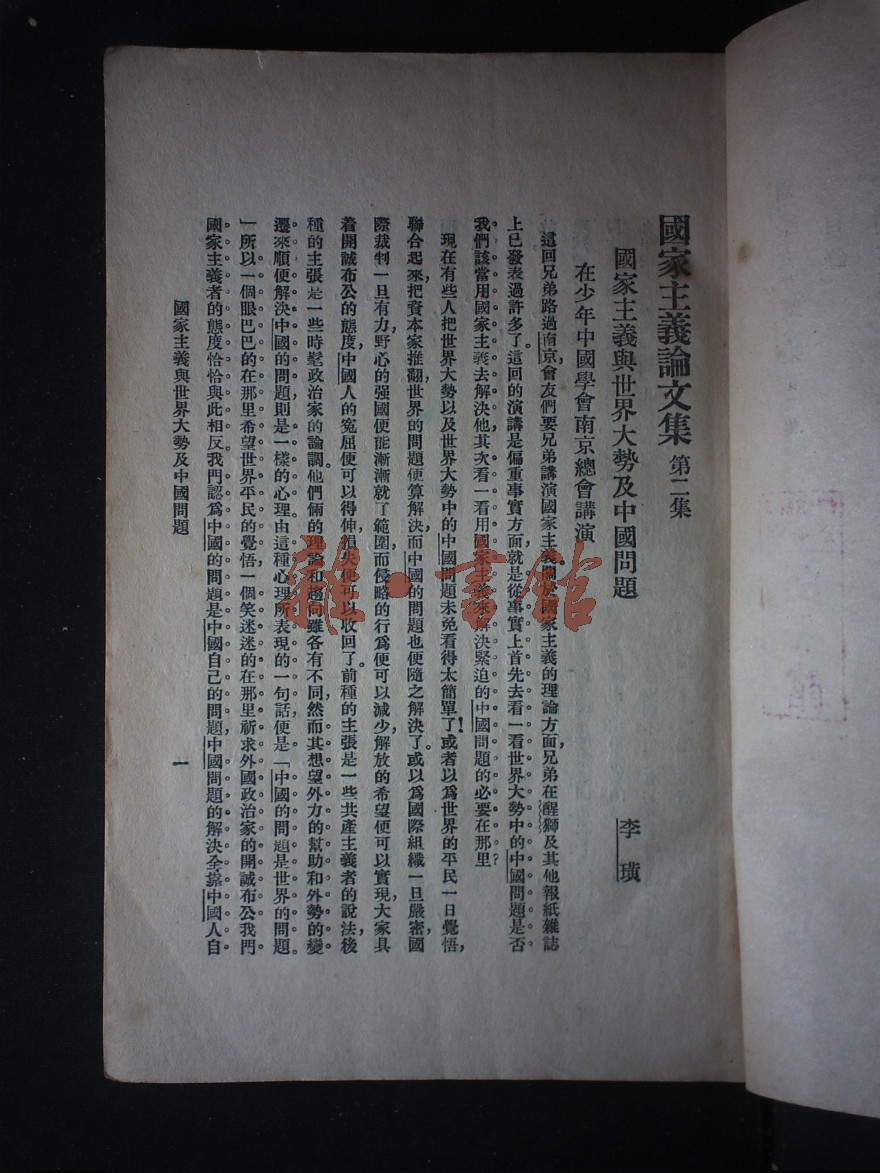 國家主義論文集 第二集
國家主義與世界大勢及中國問題
在少年中國學會南京總會講演
李璜
這回兄弟路過南京，會友們要兄弟講演國家主義。關於國家主義的理論方面，兄弟在醒獅及其他報紙雜誌
上已發表過許多了。這回的演講是偏重事實方面就是從事實上首先去看一看世界大勢中的中國問題是否
我們該當用國家主義去解決他其次看一看用國家主義來解決緊迫的中國問題的必要在那里？
現在有些人把世界大勢以及世界大勢中的中國問題未免看得太簡單了！或者以爲世界的平民一日覺悟，
聯合起來，把資本家推翻，世界的問題便算解決而中國的問題也便隨之解決了。或以爲國際組織一旦嚴密，國
際裁判一旦有力，野心的强國便能漸漸就了範圍，而侵略的行爲便可以減少，解放的希望便可以實現，大家具
着開誠布公的態度，中國人的寃屈便可以得伸，損失便可以收回了。前種的主張是一些共產主義者的說法，後
種的主張是一些時髦政治家的論調。他們倆的理論和趨向雖各有不同，然而其想望外力的幫助和外勢的變
遷來順便解決中國的問題則是一樣的心理由這種心理所表現的一句話便是「中國的問題是世界的問題。
」所以一個眼巴巴的在那里希望世界平民的覺悟，一個笑迷迷的在那里祈求外國政治家的開誠布公我門
國家主義者的態度恰恰與此相反。我門認爲中國的問題是中國自己的問題，中國問題的解決全靠中國人自
國家主義與世界大勢及中國問題
一
雜·書館